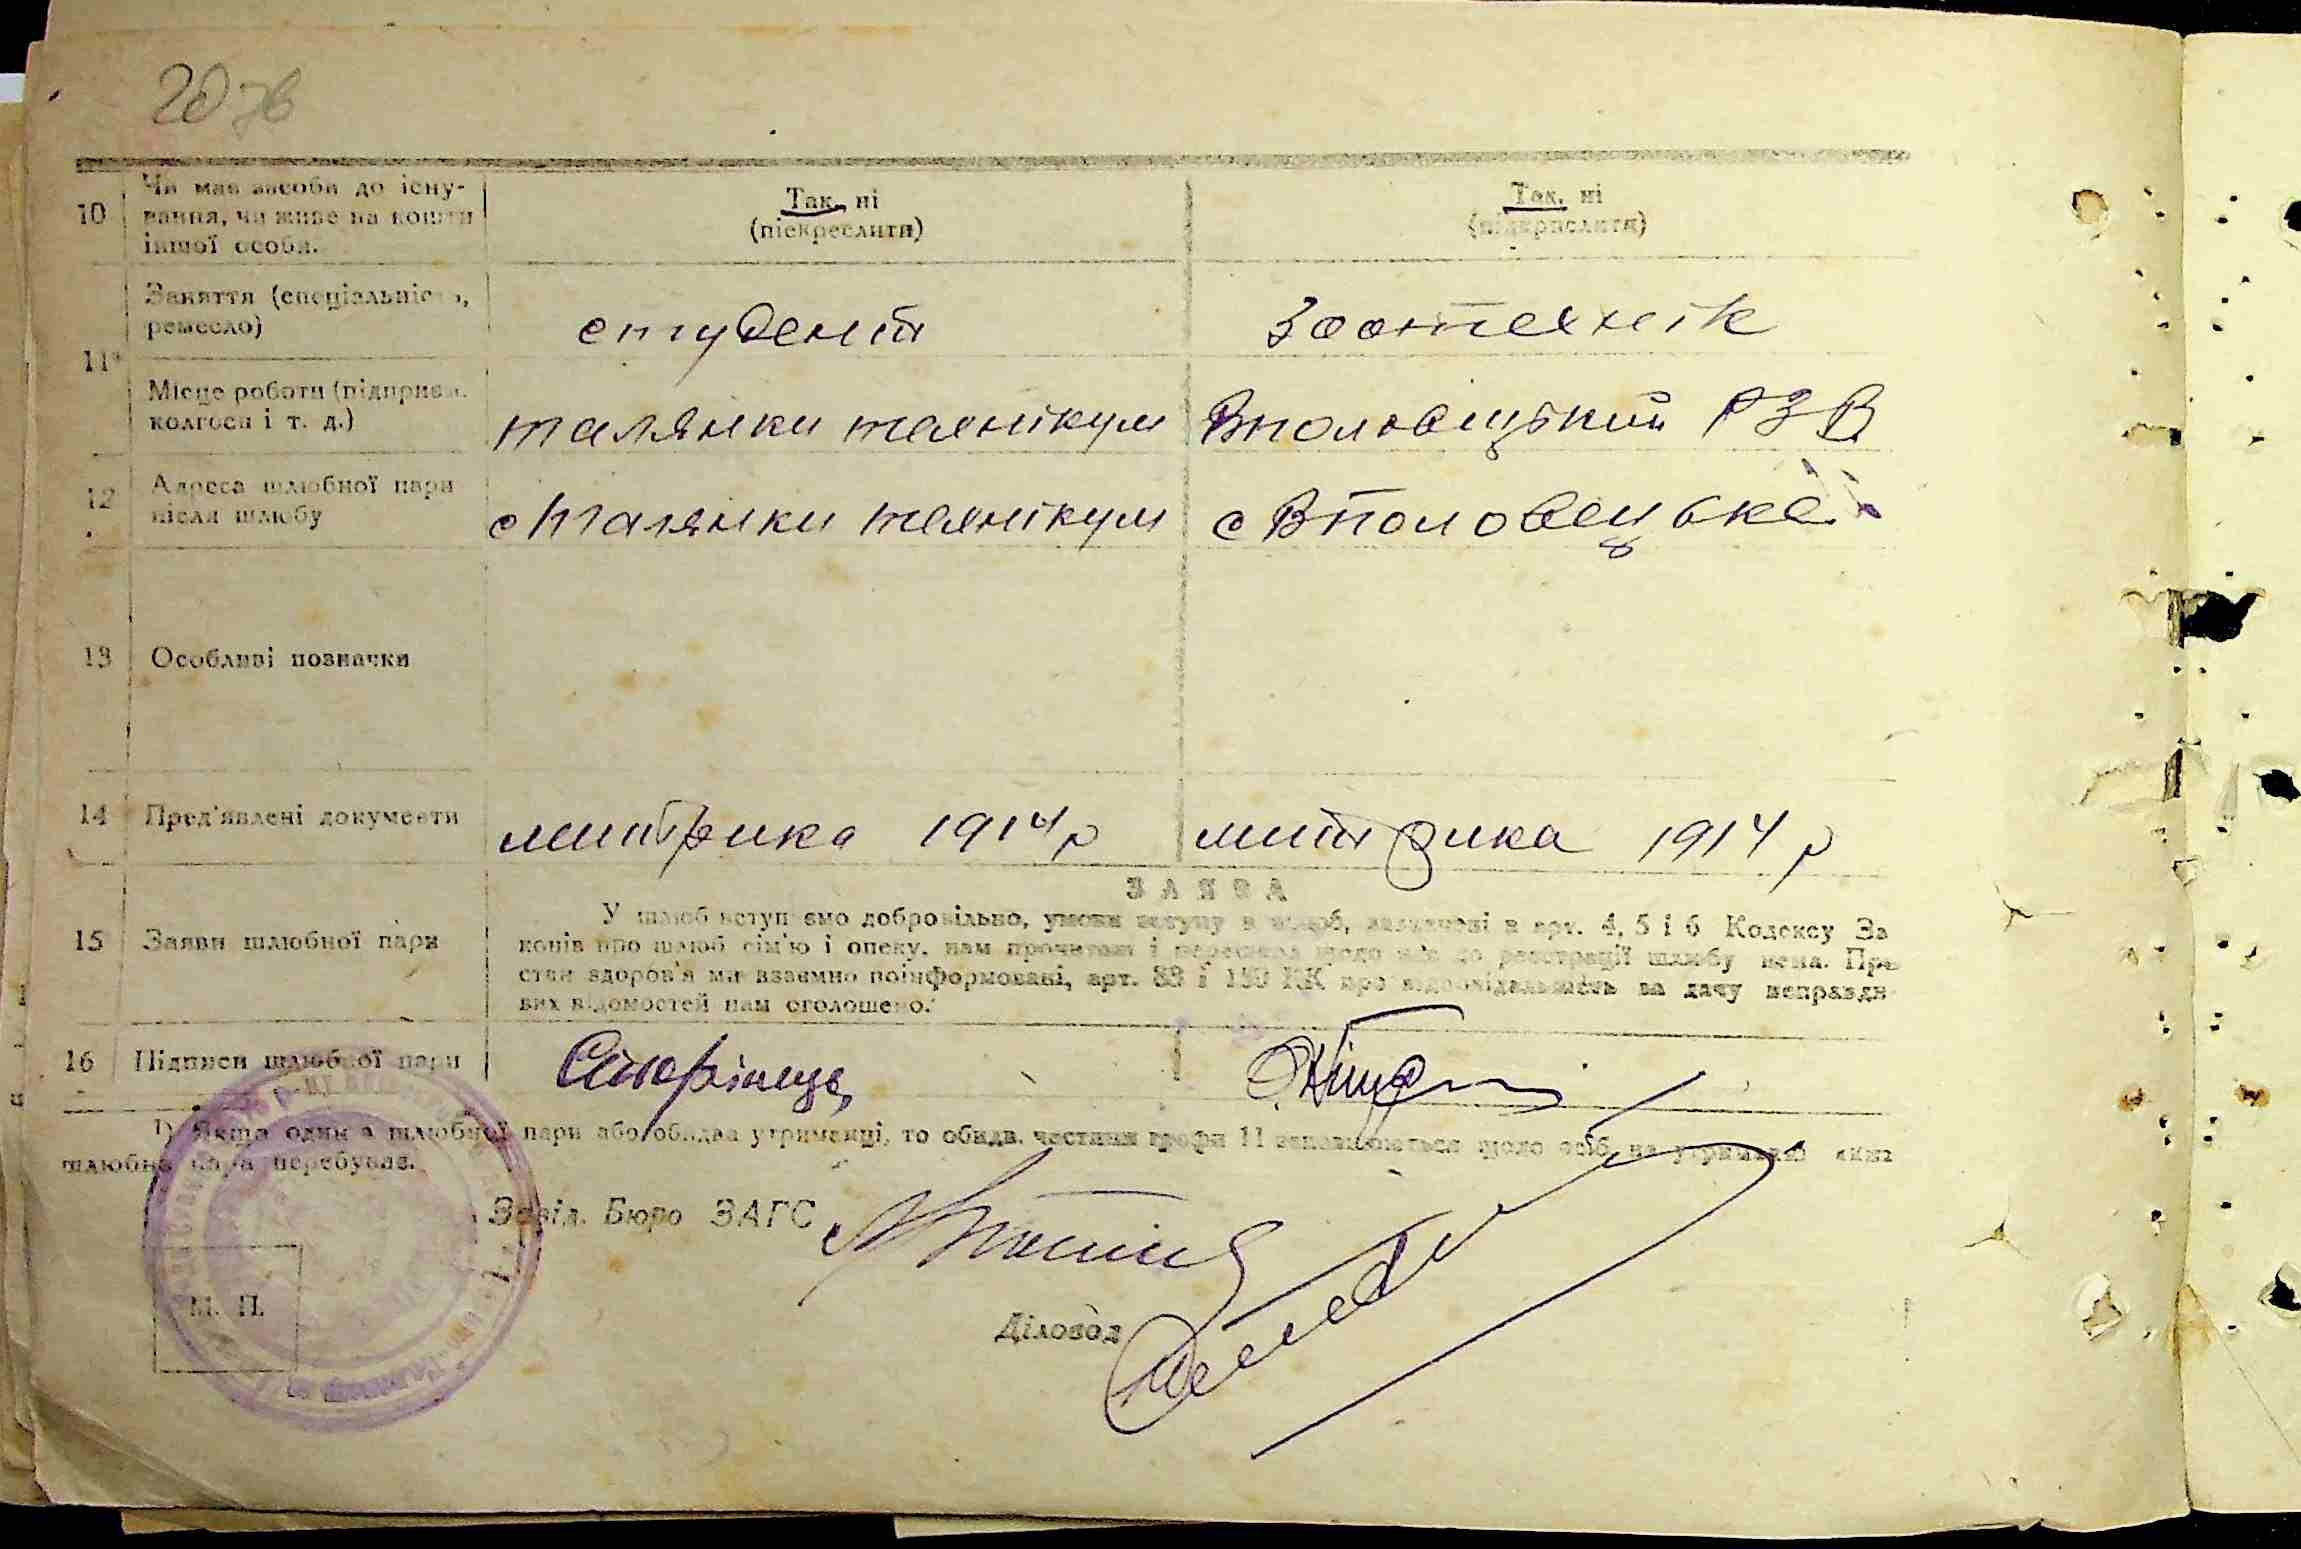 20 зв
10 Чи має засоби до існу-
вання, чи живе на кошти
іншої особи.
Так, ні
(підкреслити)
Так, ні
(підкреслити)
11
Заняття (спеціальність,
ремесло)
студент
Зоотехнік
Місце роботи (підприєм.
колгосп і т. д.)
талянки технікум
Вполовецький РЗВ
12 Адреса шлюбної пари
після шлюбу
с талянки технікум
с Вполовецьке
13 Особливі позначки
14 Пред'явлені документи
митрика 1914 р
митрика 1914 р
ЗАЯВА
15 Заяви шлюбної пари
У шлюб вступаємо добровільно, умови вступу в шлюб, зазначені в арт. 4, 5 і 6 Кодексу За
конів про шлюб сім'ю і опеку, нам прочитані і перешкод щодо них до реєстрації шлюбу нема. Про
стан здоров'я ми взаємно поінформовані, арт. 88 і 130 КК про відповідальність за дачу неправди
вих відомостей нам оголошено.
16 Підписи шлюбної пари
1) Якщо один з шлюбної пари або обидва утриманці, то обидв. частини графи 11 заповнюються щодо осіб, на утриманні яких
шлюбна пара перебуває.
Завід. Бюро ЗАГС
Діловод
М. П.